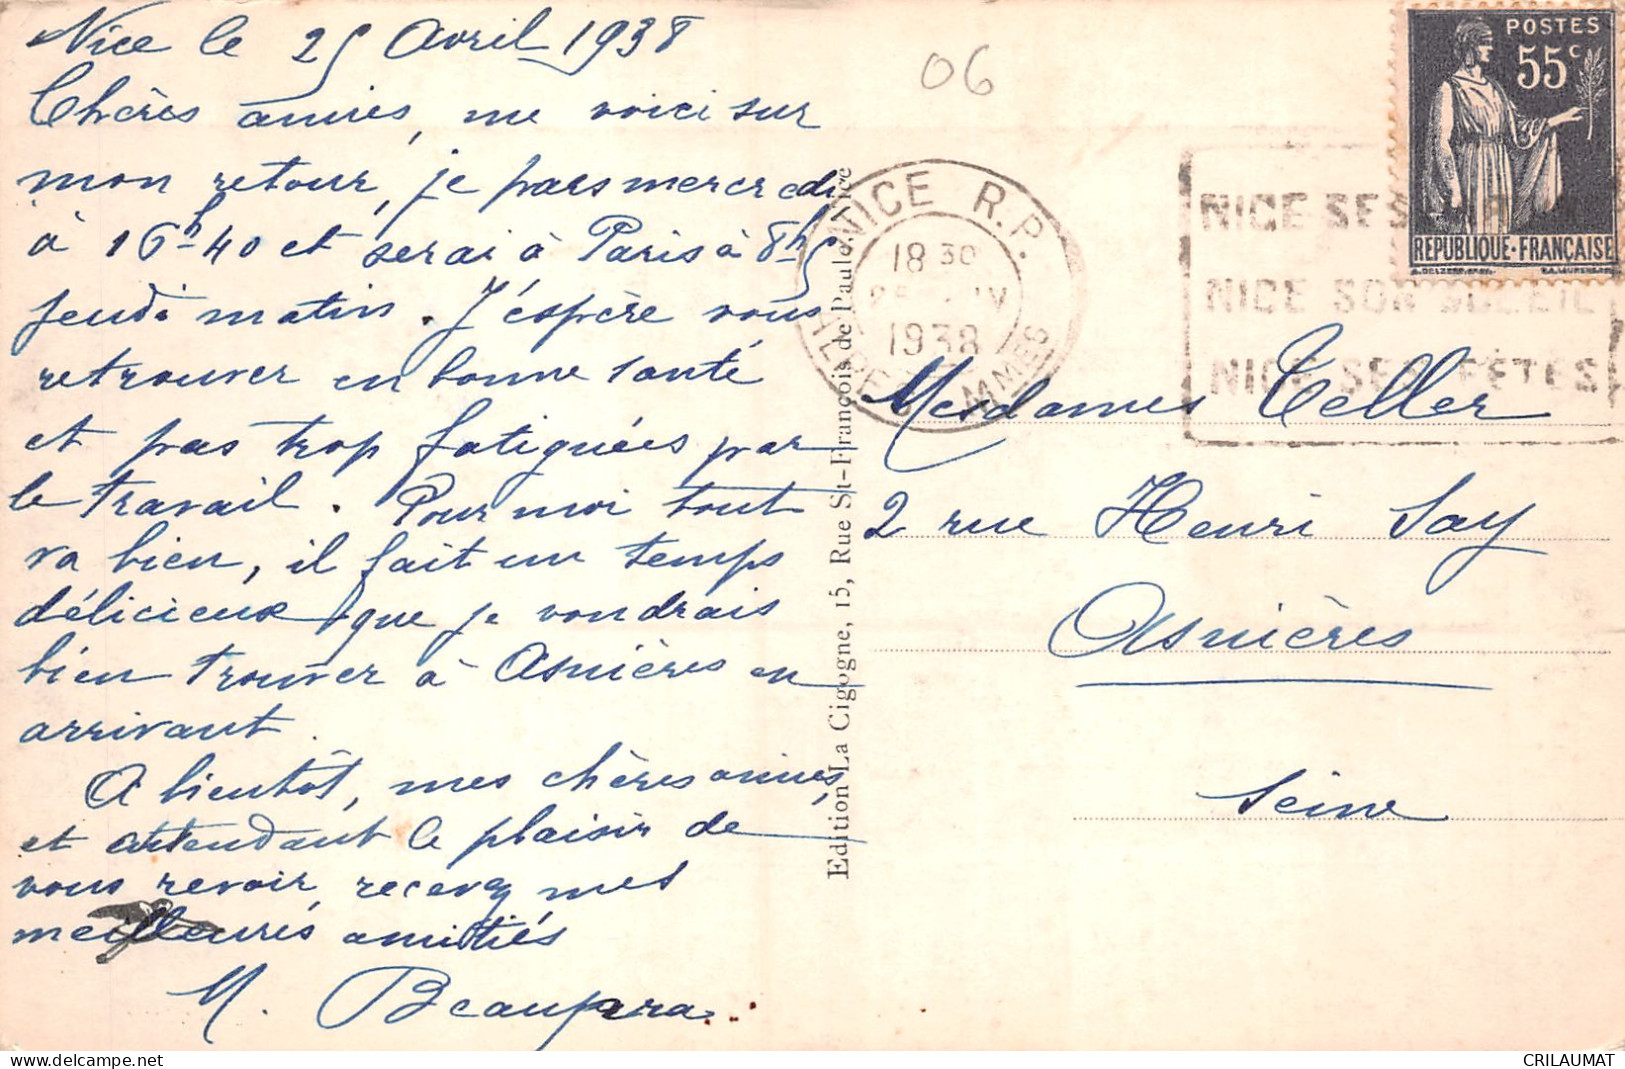 Nice le 25 Avril 1938
Chères amies, me voici sur
mon retour, je pars mercredi
à 16h40 et serai à Paris à 8h5
jeudi matin. J'espère vous
retrouver en bonne santé
et pas trop fatiguées par
le travail. Pour moi tout
va bien, il fait un temps
délicieux que je voudrais
bien trouver à Asnières en
arrivant
A bientôt, mes chères amies,
et attendant le plaisir de
vous revoir, recevez mes
meilleures amitiés
M.
06
Edition La Cigogne, 15, Rue St-François de Paule, Nice
NICE R.P.
18 30
1938
POSTES
55c
REPUBLIQUE·FRANÇAISE
NICE SES
NICE SON SOLEIL
NICE SES FÊTES
Mesdames Teller
2 rue Henri Say
Asnières
Seine
delcampe.net
CRILAUMAT